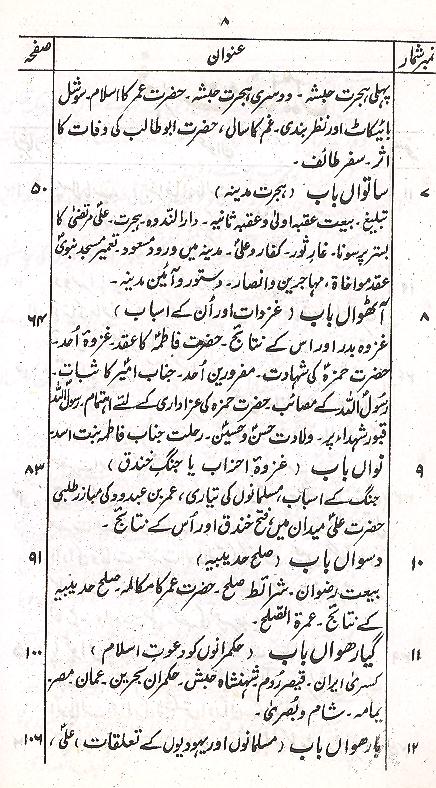 ۸
نمبر شمار عنوان صفحہ
پہلی ہجرت حبشہ ۔ دوسری ہجرت حبشہ ۔ حضرت عمر کا اسلام ۔ سوشل
بائیکاٹ اور نظر بندی ۔ غم کا سال، حضرت ابوطالب کی وفات کا
اثر ۔ سفر طائف ۔
۷ ساتواں باب (ہجرت مدینہ) ۵۰
تبلیغ ۔ بیعت عقبہ اولیٰ و عقبہ ثانیہ ۔ دارالندوہ ۔ ہجرت ۔ علی مرتضیٰؑ کا
بستر پر سونا ۔ غارِ ثور ۔ کفار و علیؑ ۔ مدینہ میں ورود مسعود ۔ تعمیر مسجد نبویؐ
عقد مواخاۃ، مہاجرین و انصار ۔ دستور و آئین مدینہ ۔
۸ آٹھواں باب (غزوات اور اُن کے اسباب) ۶۴
غزوہ بدر اور اس کے نتائج ۔ حضرت فاطمہؑ کا عقد ۔ غزوۂ اُحد ۔
حضرت حمزہؑ کی شہادت ۔ مفرورین اُحد ۔ جناب امیرؑ کا ثبات ۔
رسولؐ اللہ کے مصائب ۔ حضرت حمزہ کی عزاداری کے لئے اہتمام ۔ رسولؐ اللہ
قبور شہداء پر ۔ ولادت حسنؑ و حسینؑ ۔ رحلت جناب فاطمہ بنت اسد ۔
۹ نواں باب (غزوۂ احزاب یا جنگِ خندق) ۸۳
جنگ کے اسباب مسلمانوں کی تیاری، عمر بن عبدود کی مبارز طلبی
حضرت علیؑ میدان میں، فتح خندق اور اُس کے نتائج ۔
۱۰ دسواں باب (صلح حدیبیہ) ۹۱
بیعت رضوان ۔ شرائط صلح ۔ حضرت عمر کا مکالمہ ۔ صلح حدیبیہ
کے نتائج ۔ عمرۃ القضا ۔
۱۱ گیارھواں باب (حکمرانوں کو دعوتِ اسلام) ۱۰۰
کسریٰ ایران ۔ قیصر رُوم ۔ شہنشاہ حبش ۔ حکمران بحرین ۔ عمان مصر ۔
یمامہ ۔ شام و بُصریٰ ۔
۱۲ بارھواں باب (مسلمانوں اور یہودیوں کے تعلقات) علیؑ، ۱۰۶